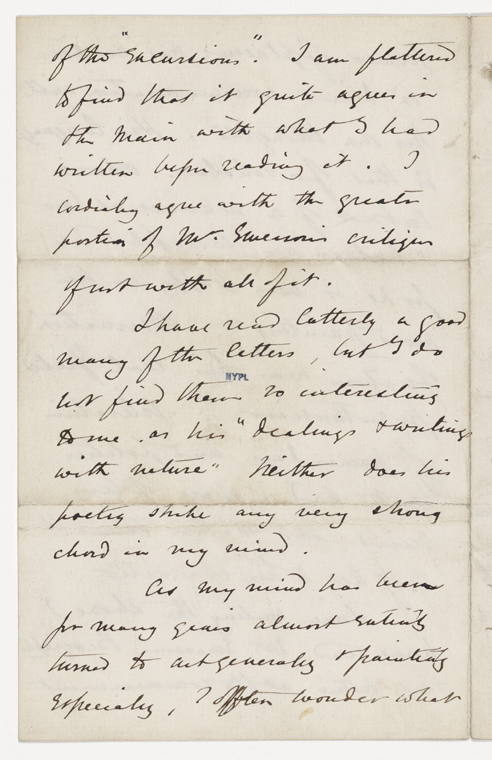 of the "Excursions". I am flattered
to find that it quite agrees in
the main with what I had
written before reading it. I
cordially agree with the greater
portion of Mr. Emerson's critique
if not with all of it.
I have read latterly a good
many of the letters, but I do
NYPL
not find them so interesting
to me as his "dealings & writings
with nature" Neither does his
poetry strike any very strong
chord in my mind.
As my mind has been
for many years almost entirely
turned to art generally & painting
especially, I often wonder what